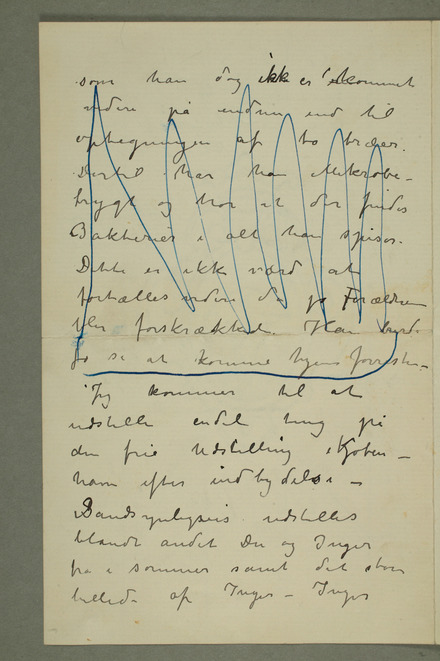 som han dog ikke er kommet
videre på endnu end til
optegningen af to træer.
Dertil har han Mikrobe-
frygt og tror at der findes
Bakterier i alt han spiser.
Dette er ikke værd at
fortælles videre da jo Forældrene
blir forskrækket. Han
jo se at komme hjem
Jeg kommer til at
udstille endel ting på
den frie Udstilling i Kjøben-
havn efter indbydelse –
Sandsynligvis udstilles
blandt andet Du og Inger
fra i sommer samt det store
billede af Inger – Inger